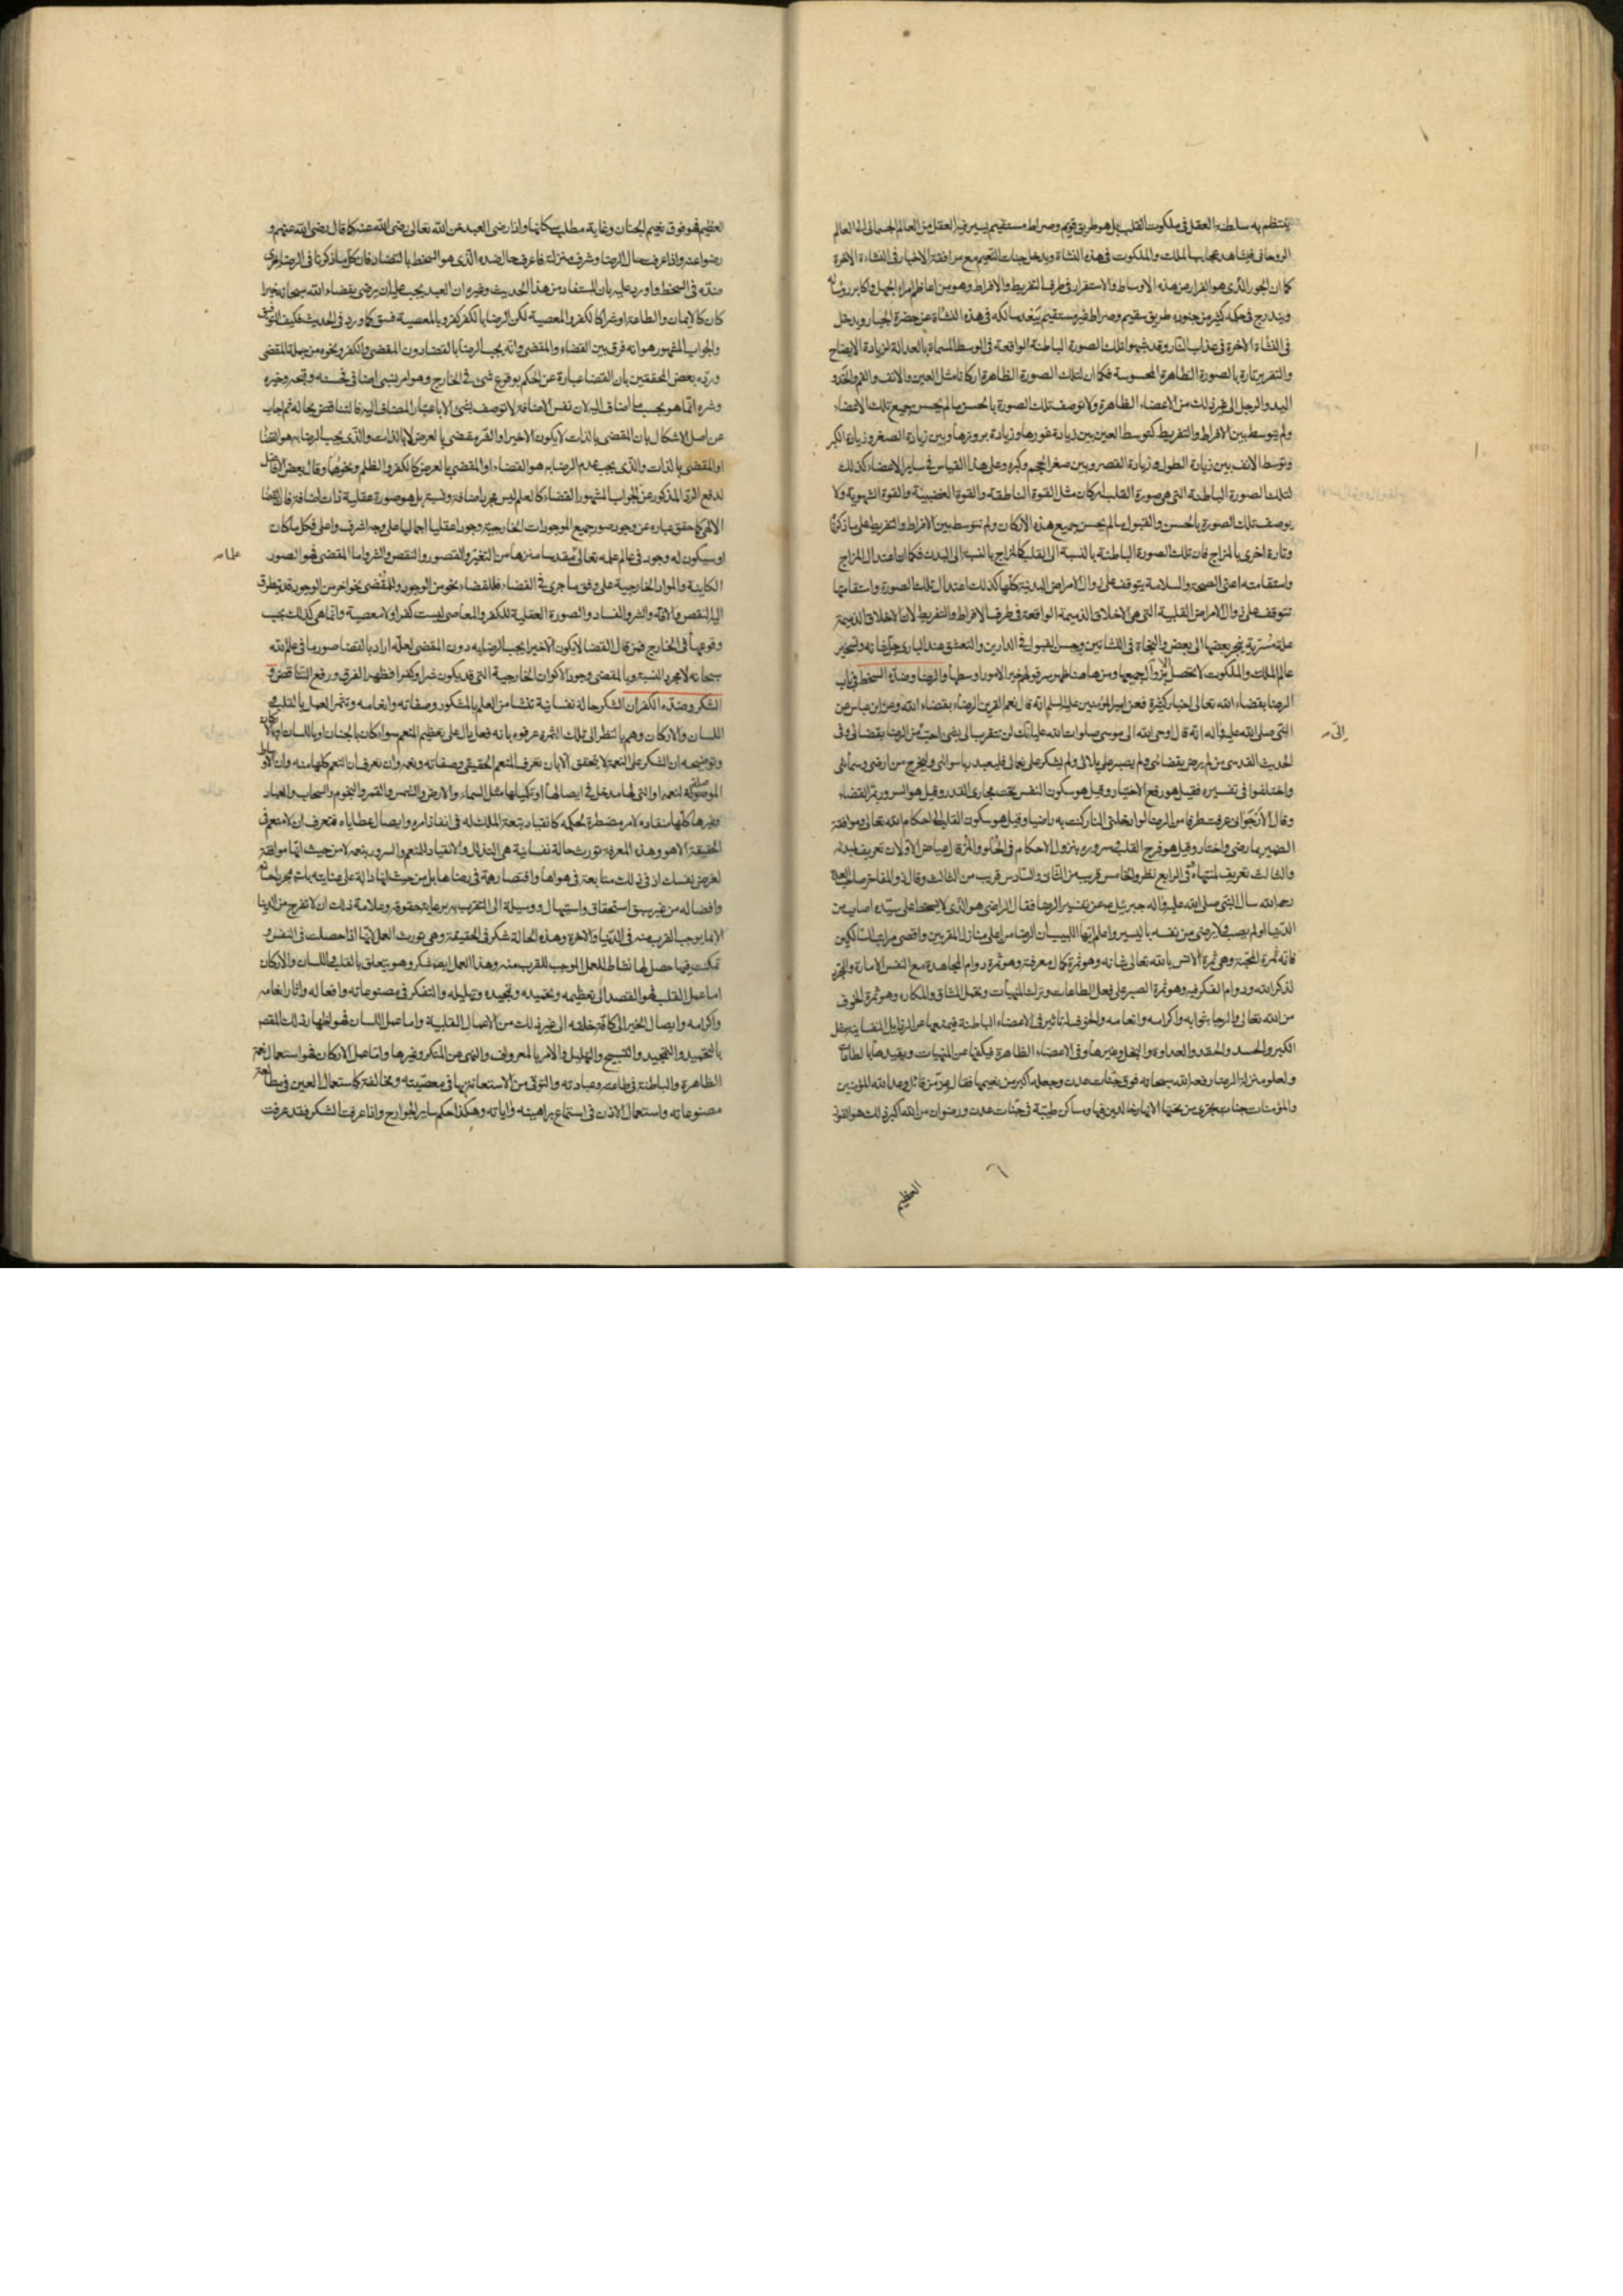 ينتظم به سلطنة العقل فى ملكوت القلب بل هو طريق قويم وصراط مستقيم يسير فيه العقل من العالم الجسمانى الى العالم
الروحانى فيشاهد عجايب الملك والملكوت فى هذه النشأة ويدخل جنات النعيم مع مرافقة الاخيار فى النشاءة الاخرة
كما ان الجور الذى هو الفرار من هذه الاوساط والاستقرار فى طرف التفريط والافراط وهو من اعاظم امراء الجهل واكابر رؤسائه
ويندرج فى حكمه كثير من جنوده طريق سقيم وصراط غير مستقيم يبعد سالكه فى هذه النشأة عن حضرة الجبار ويدخل
فى النشأة الاخرة فى عذاب النار وقد شبهوا تلك الصورة الباطنة الواقعة فى الوسط المسماة بالعدالة لزيادة الايضاح
والتقرير تارة بالصورة الظاهرة المحسوسة فكما ان لتلك الصورة الظاهرة اركانا مثل العين والانف والفم والخد و
اليد والرجل الى غير ذلك من الاعضاء الظاهرة ولا توصف تلك الصورة بالحسن ما لم يحسن جميع تلك الاعضاء
ولم يتوسط بين الافراط والتفريط كتوسط العين بين زيادة غورها وزيادة بروزها وبين زيادة الصغر وزيادة الكبر
وتوسط الانف بين زيادة الطول وزيادة القصر وبين صغر الحجم وكبره وعلى هذا القياس فى ساير الاعضاء كذلك
لتلك الصورة الباطنة التى هى صورة القلب اركان مثل القوة الناطقة والقوة الغضبية والقوة الشهوية ولا
يوصف تلك الصورة بالحسن والقبول ما لم يحسن جميع هذه الاركان ولم تتوسط بين الافراط والتفريط على ما ذكرنا
وتارة اخرى بالمزاج فان تلك الصورة الباطنة بالنسبة الى القلب كالمزاج بالنسبة الى البدن فكما ان اعتدال المزاج
واستقامته اعنى الصحة والسلامة يتوقف على زوال الامراض البدنية كلها كذلك اعتدال تلك الصورة واستقامتها
تتوقف على زوال الامراض القلبية التى هى الاخلاق الذميمة الواقعة فى طرف الافراط والتفريط لان الاخلاق الذميمة
علة مسرية ينجر بعضها الى بعض والنجاة فى النشاتين وحسن القبول فى الدارين والتعشق عند البارى جل شانه وتسخير
عالم الملك والملكوت لا تحصل الا بزوال جميعها ومن هاهنا ظهر سر قولهم خير الامور اوسطها والرضا وضده السخط فى باب
الرضا بقضاء الله تعالى اخبار كثيرة فعن امير المؤمنين عليه السلم انه قال نعم القرين الرضاء بقضاء الله وعن ابن عباس عن
النبى صلى الله عليه وآله انه قال اوحى الله الى موسى صلوات الله عليه انك لن تتقرب الى بشئ احب من الرضا بقضائى وفى
إلىّ صـ
الحديث القدسى من لم يرض بقضائى ولم يصبر على بلائى ولم يشكر على نعمائى فليعبد ربا سوائى وليخرج من ارضى وسمائى
واختلفوا فى تفسيره فقيل هو رفع الاختيار وقيل هو سكون النفس تحت مجارى القدر وقيل هو السرور بمر القضاء
وقال عرفت طرفا من الرضا لو ادخلنى النار كنت به راضيا وقيل هو سكون القلب الى احكام الله تعالى وموافقة
الضمير بما رضى واختار وقيل هو فرح القلب وسروره بنزول الاحكام فى الحلو والمر قال عياض الاولان تعريف لمبدئه
والثالث تعريف لمنتهاه وفى الرابع نظر والخامس قريب من الثانى والسادس قريب من الثالث وقال ذو المفاخر صاحب العدة
رحمه الله سأل النبى صلى الله عليه وآله جبرئيل عن تفسير الرضا فقال الراضى هو الذى لا يسخط على سيده اصاب من
الدنيا او لم يصب ولا يرضى من نفسه باليسير واعلم ايها اللبيب ان الرضا من اعلى منازل المقربين واقصى مراتب السالكين
فانه ثمرة المحبة وهى ثمرة الانس بالله تعالى شانه وهو ثمرة كمال معرفته وهو ثمرة دوام المجاهدة مع النفس الامارة والتجرد
لذكر الله ودوام الفكر فيه وهو ثمرة الصبر على فعل الطاعات وترك المنهيات وتحمل المشاق والمكاره وهو ثمرة الخوف
من الله تعالى والرجا بثوابه واكرامه وانعامه والخوف له تاثير فى الاعضاء الباطنة فيمنعها عن الرذايل النفسانية مثل
الكبر والحسد والحقد والعداوة والبخل وغيرها وفى الاعضاء الظاهرة فيكفها عن المنهيات ويقيدها بالطاعات
ولعلو منزلة الرضا رفعه الله سبحانه فوق جنات عدن وجعله اكبر من نعيمها فقال عز من قائل وعد الله المؤمنين
والمؤمنات جنات تجرى من تحتها الانهار خالدين فيها ومساكن طيبة فى جنات عدن ورضوان من الله اكبر ذلك هو الفوز
العظيم
العظيم فهو فوق نعيم الجنان وغاية مطلب سكانها واذا رضى العبد عن الله تعالى رضى الله عنه كما قال رضى الله عنهم و
رضوا عنه واذا عرفت حال الرضا وشرف منزلته فاعرف حال ضده الذى هو السخط بالتضاد فان كل ما ذكرنا فى الرضا يجرى
ضده فى السخط واورد عليه بان المستفاد من هذا الحديث وغيره ان العبد يجب عليه ان يرضى بقضاء الله سبحانه خيرا
كان كالايمان والطاعة او شرا كالكفر والمعصية لكن الرضا بالكفر كفر وبالمعصية فسق كما ورد فى الحديث فكيف التوفيق
والجواب المشهور هو انه فرق بين القضاء والمقضى وانه يجب الرضا بالقضا دون المقضى والكفر ونحوه من جملة المقضى
ورده بعض المحققين بان القضا عبارة عن الحكم بوقوع شئ فى الخارج وهو امر نسبى اضافى فحسنه وقبحه وخيره
وشره انما هو بحسب ما اضاف اليه لان نفس الاضافة لا توصف بشئ الا باعتبار المضاف اليه فالتناقض بحاله ثم اجاب
عن اصل الاشكال بان المقضى بالذات لا يكون الا خيرا والشر مقضى بالعرض لا بالذات والذى يجب الرضا به هو القضا
او المقضى بالذات والذى يجب عدم الرضا به هو القضاء او المقضى بالعرض كالكفر والظلم ونحوهما وقال بعض الافاضل
لدفع الرد المذكور عن الجواب المشهور القضاء كالعلم ليس مجرد اضافة ونسبة بل هو صورة عقلية ذات اضافة فالقضا
الالهى كما حقق عباره عن وجود صور جميع الموجودات الخارجية وجودا عقليا اجماليا على وجه اشرف واعلى فكل ما كان
او سيكون له وجود فى عالم علمه تعالى مقدسا منزها من التغير والقصور والنقص والشر واما المقضى فهو الصور
الكاينة والمواد الخارجية على وفق ما جرى فى القضاء فللقضاء نحو من الوجود وللمقضى نحو اخر من الوجود قد يتطرق
اليه النقص والافة والشر والفساد والصورة العقلية للكفر والمعاصى ليست كفرا ولا معصية وانما هى كذلك بحسب
وقوعها فى الخارج فمن قال القضا لا يكون الا خيرا يجب الرضا به دون المقضى لعله اراد بالقضا صور ما فى علم الله
سبحانه لا مجرد النسبة وبالمقضى وجود الاكوان الخارجية التى قد يكون شرا وكفرا فظهر الفرق ورفع التناقض و
الشكر وضده الكفران الشكر حالة نفسانية تنشأ من العلم بالمشكور وصفاته وانعامه وتثمر العمل بالقلب و
اللسان والاركان وهم بالنظر الى تلك الثمرة عرفوه بانه فعل دال على تعظيم المنعم سواء كان بالجنان او باللسان او بالاركان
وتوضيحه ان الشكر على النعمة لا يتحقق الا بان تعرف المنعم الحقيقى وصفاته ونعمه وان تعرف ان النعم كلها منه وان الاوساط
الموصلة لنعمه او التى لها مدخل فى ايصالها او تكميلها مثل السماء والارض والشمس والقمر والنجوم والسحاب والعباد
وغيرها كلها منقاده لامره مضطرة لحكمه كانقياد تبعة الملك له فى انفاذ امره وايصال عطاياه فتعرف ان لا منعم فى
الحقيقة الا هو وهذه المعرفة تورث حالة نفسانية هى التذلل والانقياد للمنعم والسرور بنعمه لا من حيث انها موافقة
لغرض نفسك اذ فى ذلك متابعة فى هواها واقتصار همة فى رضاها بل من حيث انها دالة على عنايته بك
وافضاله من غير سبق استحقاق واستيهال ووسيلة الى التقرب به برعاية حقوقه وعلامة ذلك ان لا تفرح من الدنيا
الا بما يوجب القرب منه فى الدنيا والاخرة وهذه الحالة شكر فى الحقيقة وهى تورث العمل لانها اذا حصلت فى النفس و
تمكنت فيها حصل لها نشاط للعمل الموجب للقرب منه وهذا العمل ايضا شكر وهو يتعلق بالقلب واللسان والاركان
اما عمل القلب فهو القصد الى تعظيمه وتحميده وتمجيده وتهليله والتفكر فى مصنوعاته وافعاله واثار انعامه
واكرامه وايصال الخير الى كافة خلقه الى غير ذلك من الاعمال القلبية واما عمل اللسان فهو اظهار ذلك المقصد
بالتحميد والتمجيد والتسبيح والتهليل والامر بالمعروف والنهى عن المنكر وغيرها واما عمل الاركان فهو استعمال نعمه
الظاهرة والباطنة فى طاعته وعبادته والتوقى من الاستعانة بها فى معصيته ومخالفته كاستعمال العين فى مطالعة
مصنوعاته واستعمال الاذن فى استماع براهينه واياته وهكذا حكم ساير الجوارح واذا عرفت الشكر فقد عرفت